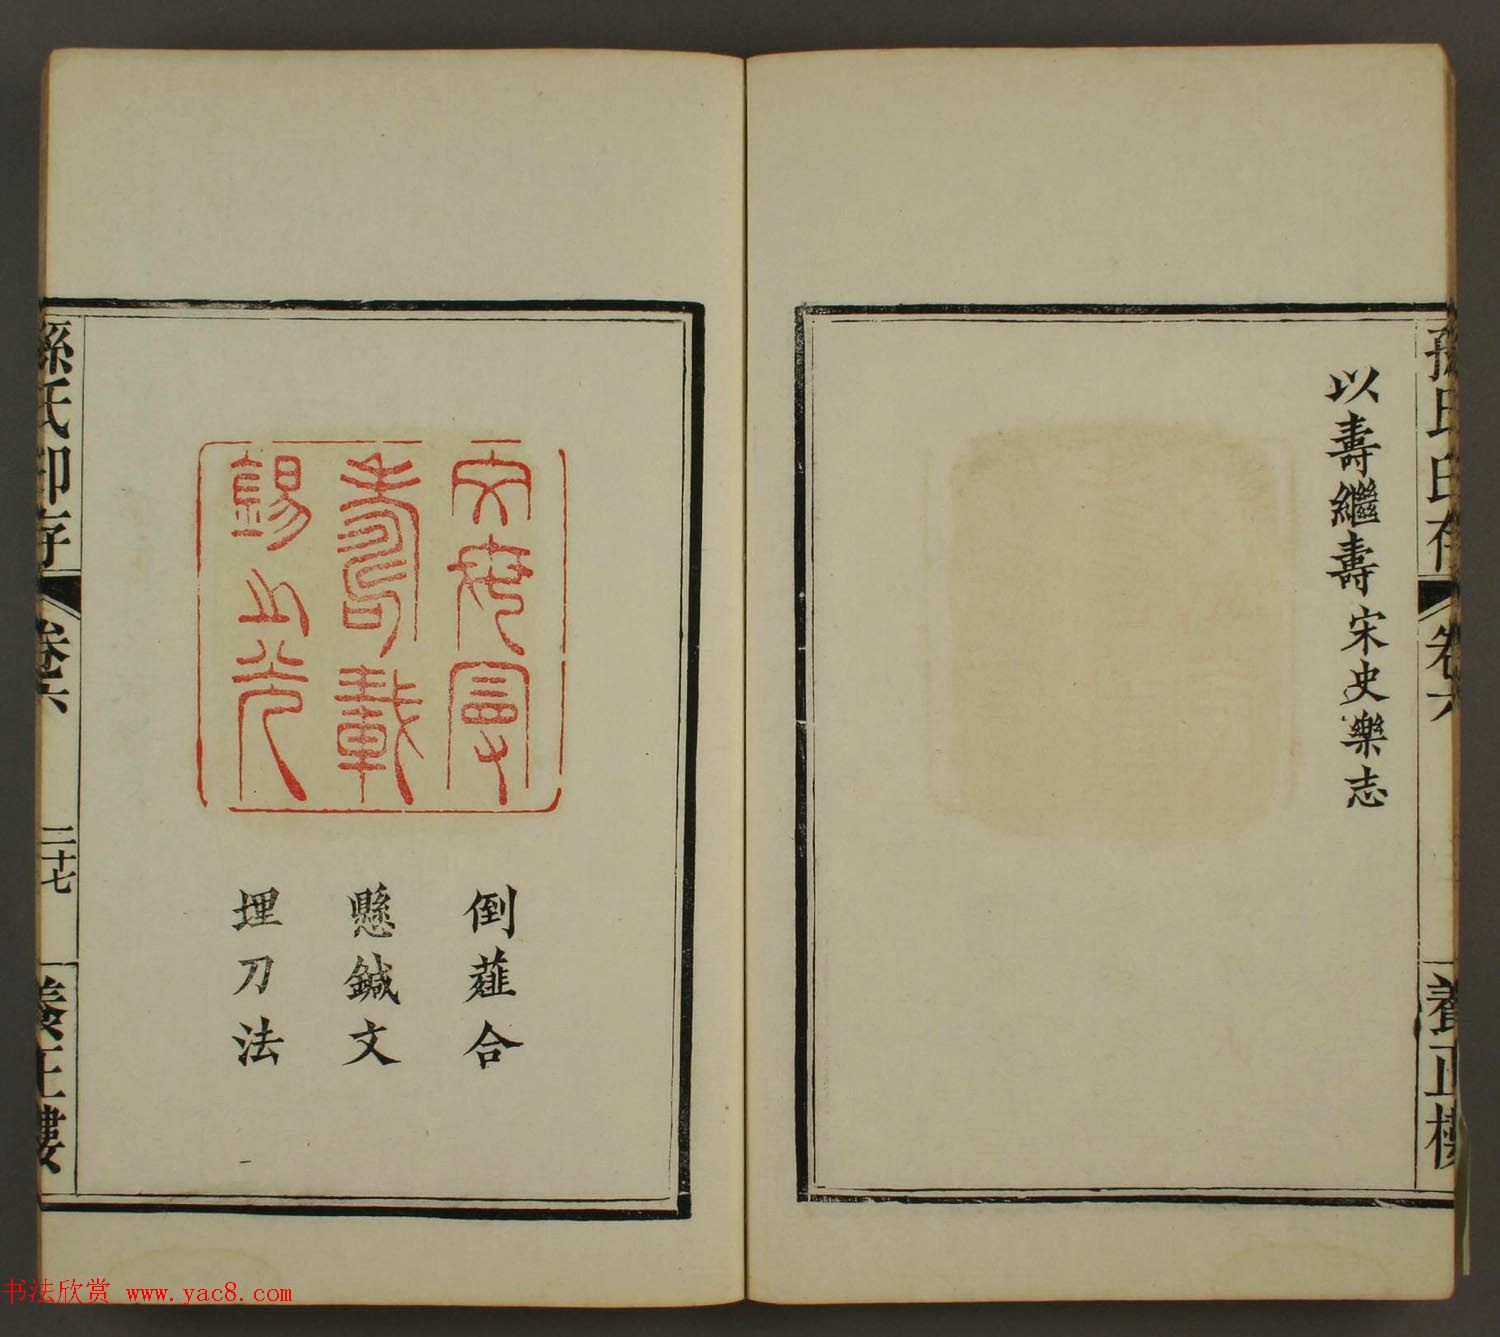 孫氏印存
卷六
養正樓
以壽繼壽宋史樂志
文母曼
壽載
錫之光
倒薤合
懸鍼文
埋刀法
孫氏印存
卷六
二十七
養正樓
书法欣赏 www.yac8.com